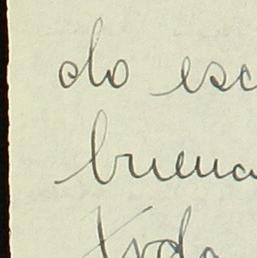 do esc
buena
toda